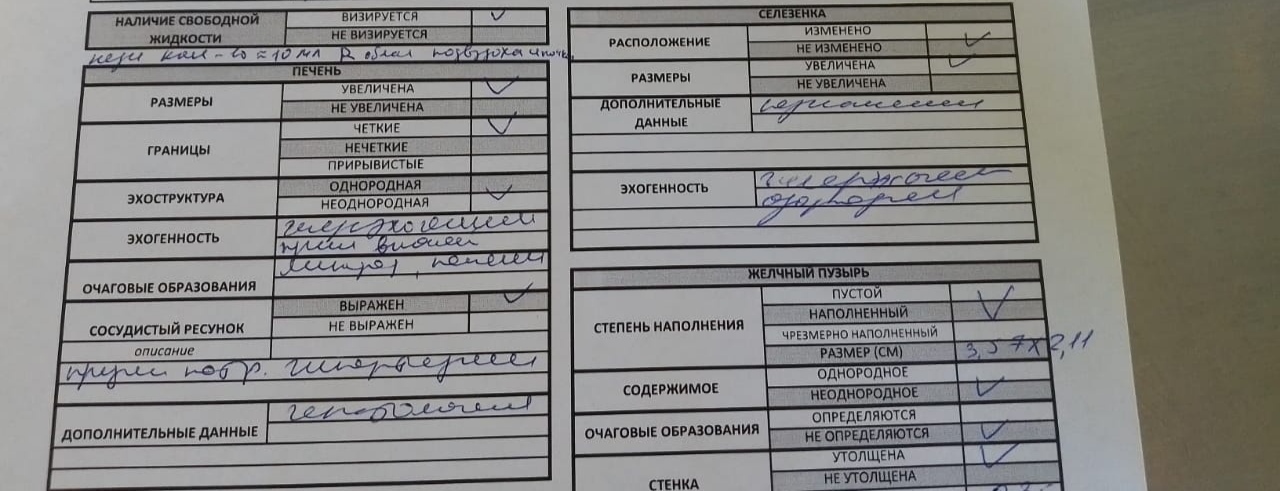 НАЛИЧИЕ СВОБОДНОЙ ЖИДКОСТИ
ВИЗИРУЕТСЯ ✓
НЕ ВИЗИРУЕТСЯ
кол-во ≈ 10 мл В облас
ПЕЧЕНЬ
РАЗМЕРЫ
УВЕЛИЧЕНА ✓
НЕ УВЕЛИЧЕНА
ГРАНИЦЫ
ЧЕТКИЕ ✓
НЕЧЕТКИЕ
ПРИРЫВИСТЫЕ
ЭХОСТРУКТУРА
ОДНОРОДНАЯ
НЕОДНОРОДНАЯ ✓
ЭХОГЕННОСТЬ
ОЧАГОВЫЕ ОБРАЗОВАНИЯ
СОСУДИСТЫЙ РЕСУНОК
ВЫРАЖЕН ✓
НЕ ВЫРАЖЕН
описание
ДОПОЛНИТЕЛЬНЫЕ ДАННЫЕ
гепатомегалия
СЕЛЕЗЕНКА
РАСПОЛОЖЕНИЕ
ИЗМЕНЕНО
НЕ ИЗМЕНЕНО ✓
РАЗМЕРЫ
УВЕЛИЧЕНА ✓
НЕ УВЕЛИЧЕНА
ДОПОЛНИТЕЛЬНЫЕ
ДАННЫЕ
ЭХОГЕННОСТЬ
ЖЕЛЧНЫЙ ПУЗЫРЬ
СТЕПЕНЬ НАПОЛНЕНИЯ
ПУСТОЙ
НАПОЛНЕННЫЙ ✓
ЧРЕЗМЕРНО НАПОЛНЕННЫЙ
РАЗМЕР (СМ) 3,57 х 2,11
СОДЕРЖИМОЕ
ОДНОРОДНОЕ
НЕОДНОРОДНОЕ ✓
ОЧАГОВЫЕ ОБРАЗОВАНИЯ
ОПРЕДЕЛЯЮТСЯ
НЕ ОПРЕДЕЛЯЮТСЯ ✓
СТЕНКА
УТОЛЩЕНА ✓
НЕ УТОЛЩЕНА